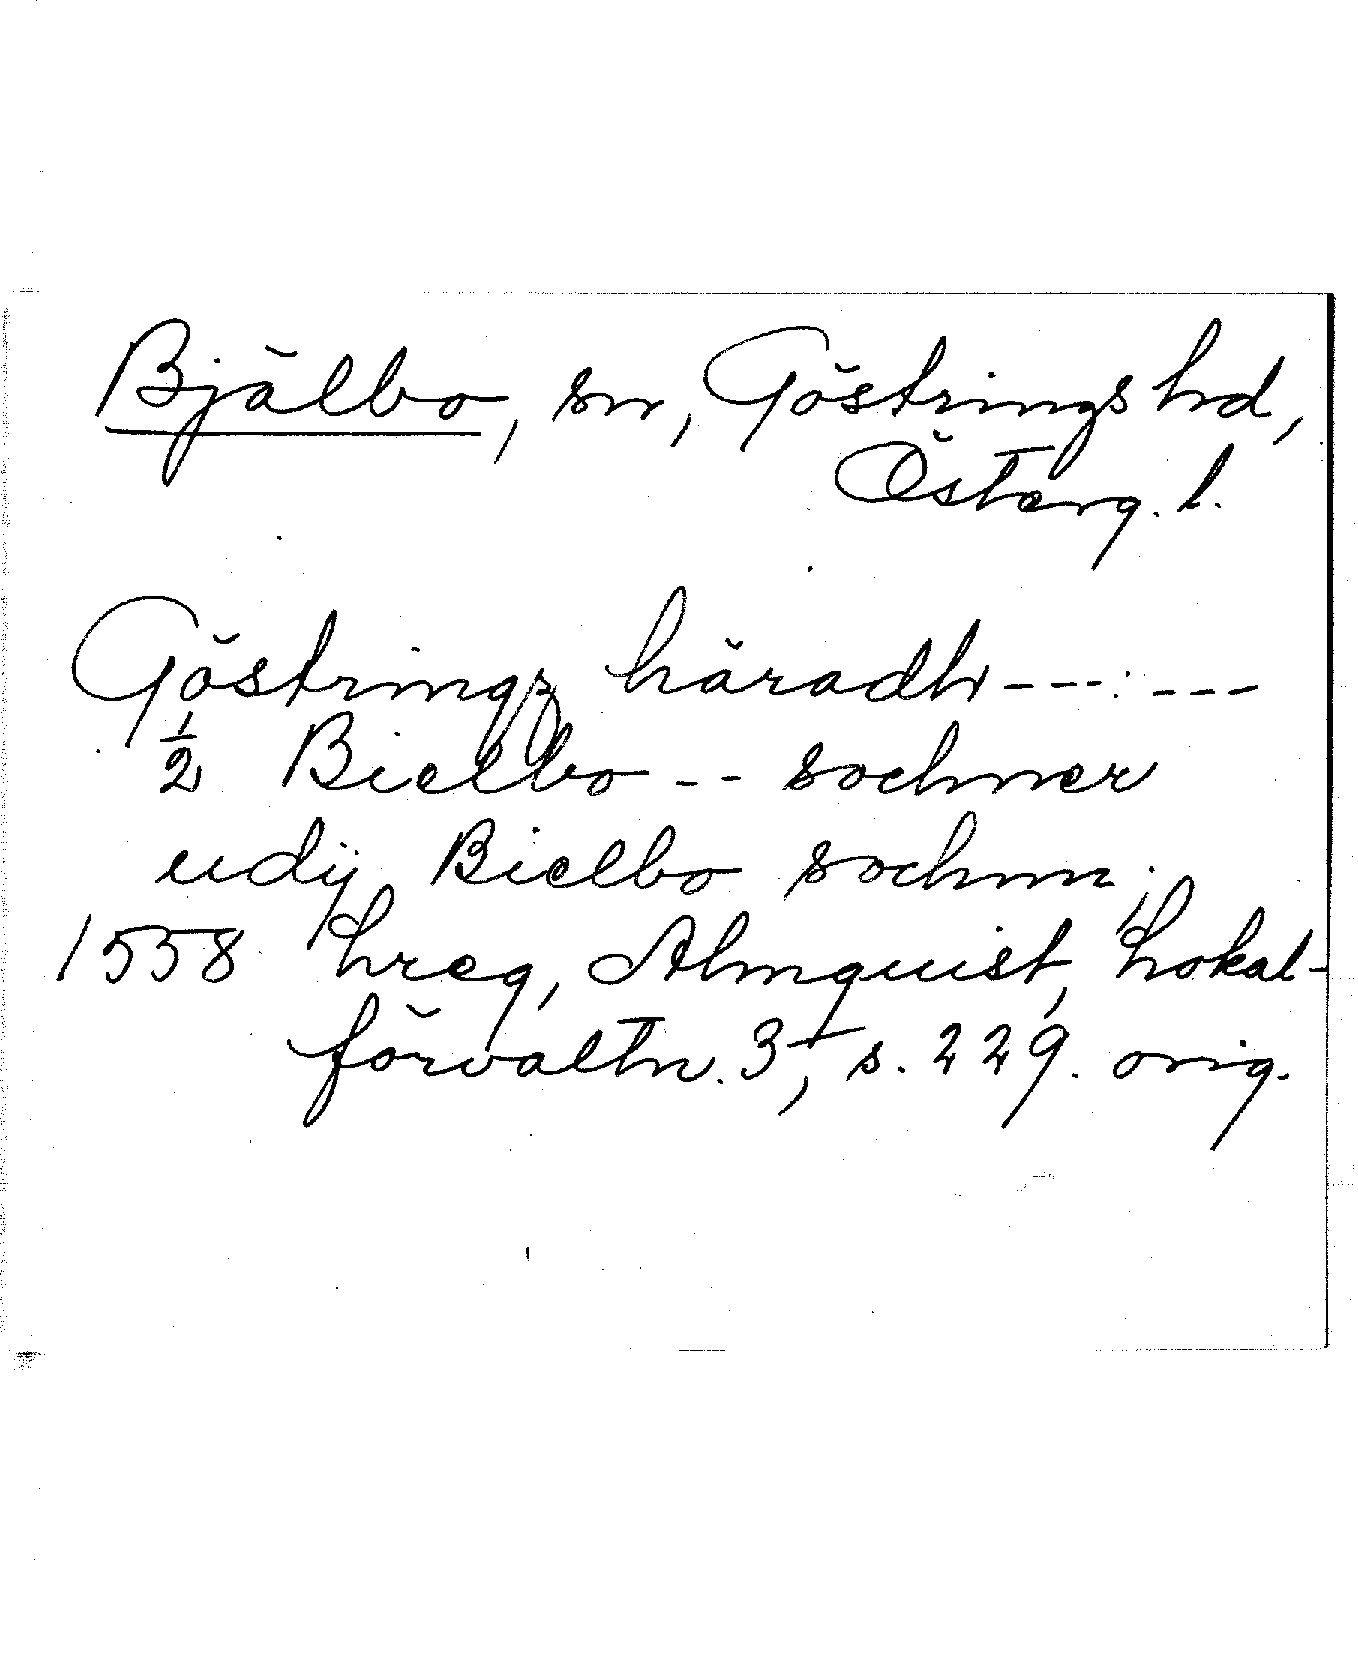 Bjälbo, sn, Göstrings hd,
Österg. l.
Göstringz häradh --- ---
1/2 Bielbo -- sochner
udij Bielbo sochnn;
1558 hreg, Almquist, Lokal-
förvaltn. 3, s. 229. orig.